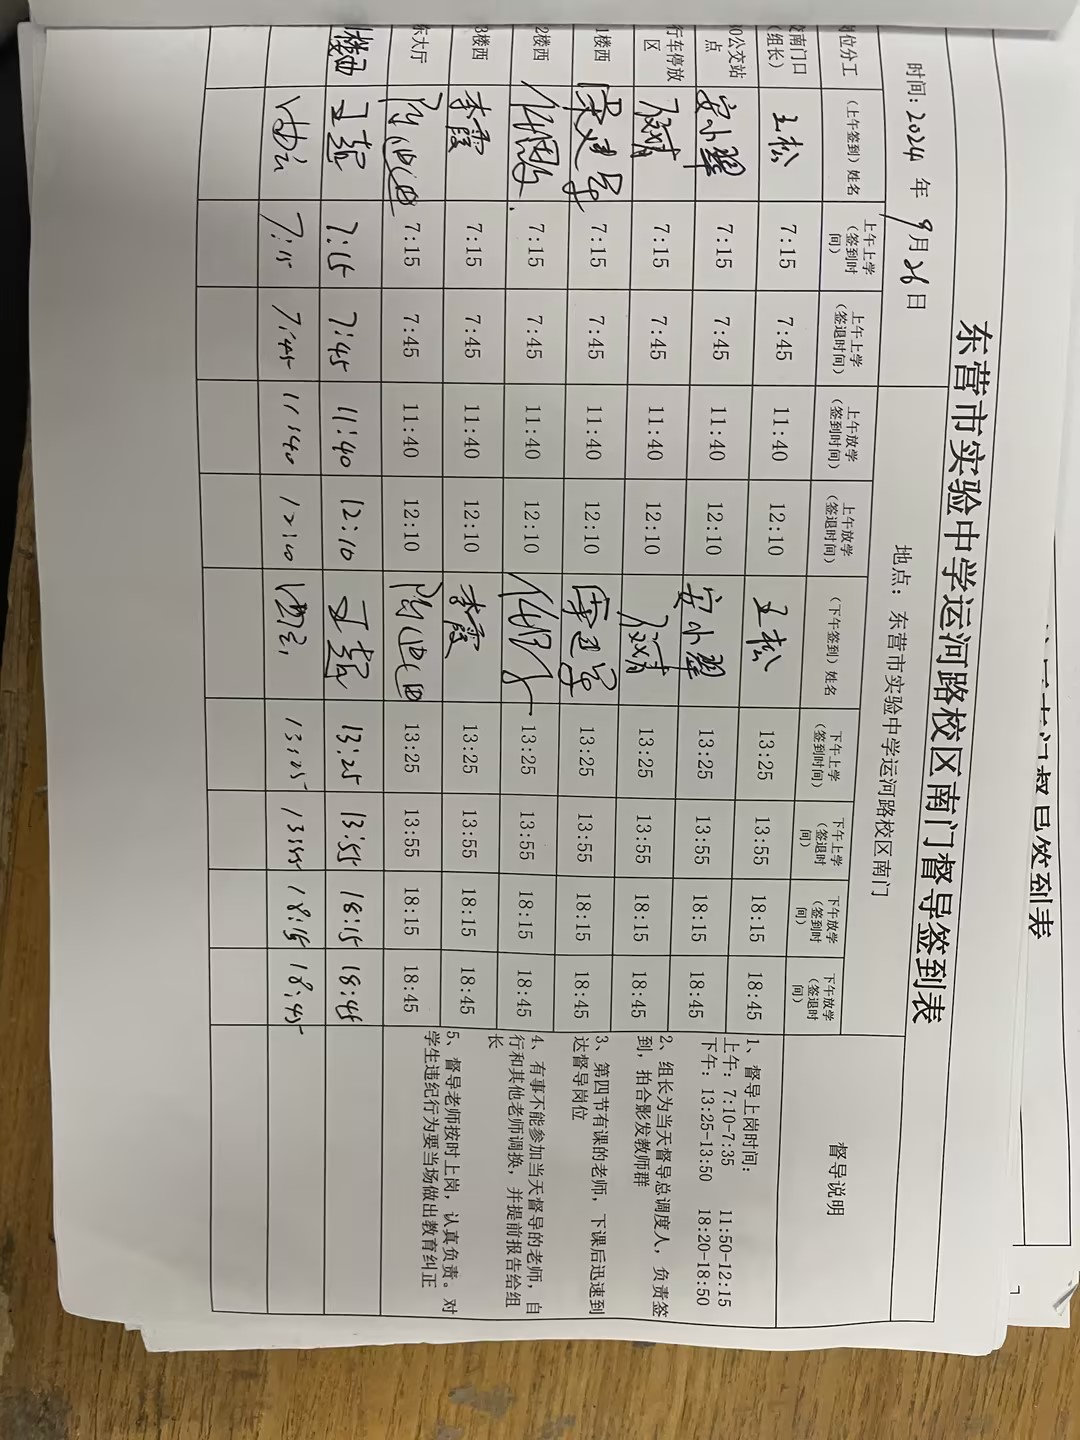 东营市实验中学运河路校区南门督导签到表
时间: 2024 年 9月26日 地点: 东营市实验中学运河路校区南门
岗位分工 (上午签到) 姓名 上午上学 (签到时间) 上午上学 (签退时间) 上午放学 (签到时间) 上午放学 (签退时间) (下午签到) 姓名 下午上学 (签到时间) 下午上学 (签退时间) 下午放学 (签到时间) 下午放学 (签退时间) 督导说明
南门口 (组长) 王松 7:15 7:45 11:40 12:10 王松 13:25 13:55 18:15 18:45
公交站点 安小翠 7:15 7:45 11:40 12:10 安小翠 13:25 13:55 18:15 18:45
行车停放区 7:15 7:45 11:40 12:10 13:25 13:55 18:15 18:45
1楼西 7:15 7:45 11:40 12:10 13:25 13:55 18:15 18:45
2楼西 7:15 7:45 11:40 12:10 13:25 13:55 18:15 18:45
3楼西 李霞 7:15 7:45 11:40 12:10 李霞 13:25 13:55 18:15 18:45
东大厅 7:15 7:45 11:40 12:10 13:25 13:55 18:15 18:45
楼西 7:15 7:45 11:40 12:10 13:25 13:55 18:15 18:45
7:15 7:45 11:40 12:10 13:25 13:55 18:15 18:45
1、督导上岗时间:
上午: 7:10-7:35 11:50-12:15
下午: 13:25-13:50 18:20-18:50
2、组长为当天督导总调度人, 负责签
到, 拍合影发教师群
3、第四节有课的老师, 下课后迅速到
达督导岗位
4、有事不能参加当天督导的老师, 自
行和其他老师调换, 并提前报告给组
长
5、督导老师按时上岗, 认真负责。对
学生违纪行为要当场做出教育纠正
签到表